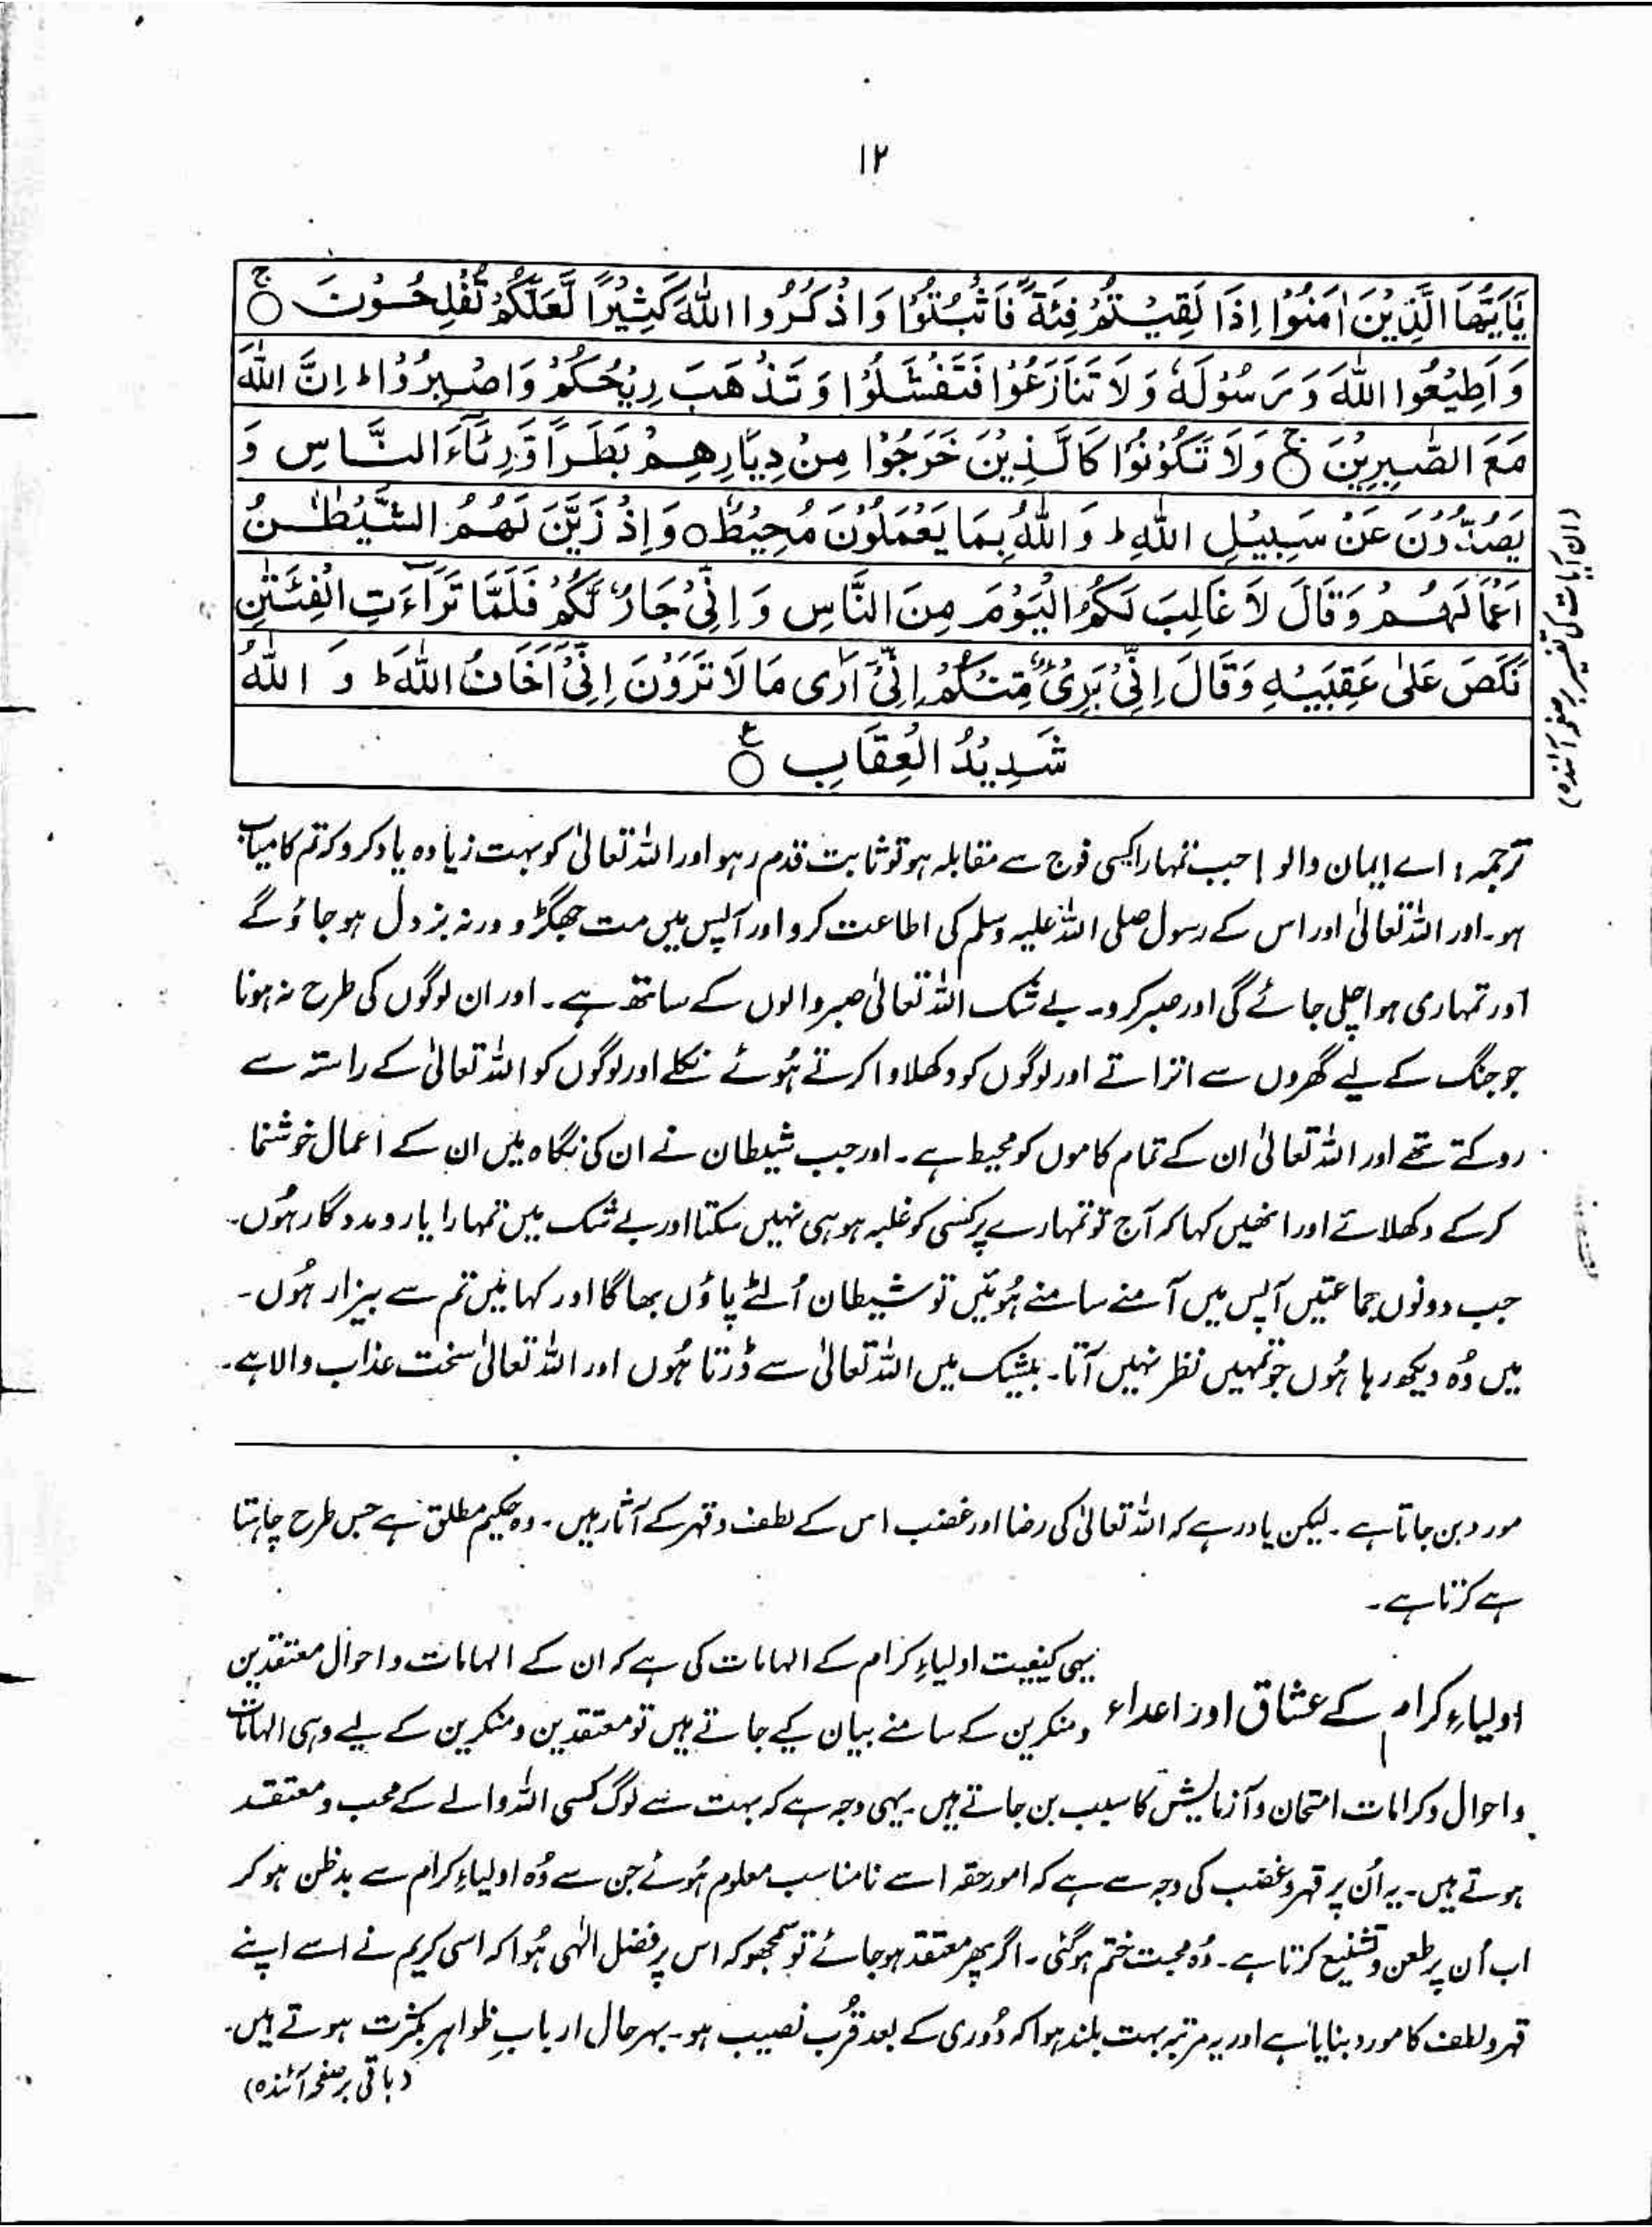 ۱۲
يٰٓاَيُّهَا الَّذِيْنَ اٰمَنُوْٓا اِذَا لَقِيْتُمْ فِئَةً فَاثْبُتُوْا وَاذْكُرُوا اللّٰهَ كَثِيْرًا لَّعَلَّكُمْ تُفْلِحُوْنَ ۚ
وَاَطِيْعُوا اللّٰهَ وَرَسُوْلَهٗ وَلَا تَنَازَعُوْا فَتَفْشَلُوْا وَتَذْهَبَ رِيْحُكُمْ وَاصْبِرُوْا ؕ اِنَّ اللّٰهَ
مَعَ الصّٰبِرِيْنَ ۚ وَلَا تَكُوْنُوْا كَالَّذِيْنَ خَرَجُوْا مِنْ دِيَارِهِمْ بَطَرًا وَّرِئَآءَ النَّاسِ وَ
يَصُدُّوْنَ عَنْ سَبِيْلِ اللّٰهِ ؕ وَاللّٰهُ بِمَا يَعْمَلُوْنَ مُحِيْطٌ ○ وَاِذْ زَيَّنَ لَهُمُ الشَّيْطٰنُ
اَعْمَالَهُمْ وَقَالَ لَا غَالِبَ لَكُمُ الْيَوْمَ مِنَ النَّاسِ وَاِنِّيْ جَارٌ لَّكُمْ فَلَمَّا تَرَآءَتِ الْفِئَتٰنِ
نَكَصَ عَلٰى عَقِبَيْهِ وَقَالَ اِنِّيْ بَرِيْٓءٌ مِّنْكُمْ اِنِّيْٓ اَرٰى مَا لَا تَرَوْنَ اِنِّيْٓ اَخَافُ اللّٰهَ ؕ وَ اللّٰهُ
شَدِيْدُ الْعِقَابِ ○ ع
(ان آیات کی تفسیر بر صفحہ آئندہ)
ترجمہ: اے ایمان والو! جب تمہارا کسی فوج سے مقابلہ ہو تو ثابت قدم رہو اور اللہ تعالیٰ کو بہت زیادہ یاد کرو کہ تم کامیاب
ہو۔ اور اللہ تعالیٰ اور اس کے رسول صلی اللہ علیہ وسلم کی اطاعت کرو اور آپس میں مت جھگڑو ورنہ بزدل ہو جاؤ گے
اور تمہاری ہوا چلی جائے گی اور صبر کرو۔ بے شک اللہ تعالیٰ صبر والوں کے ساتھ ہے۔ اور ان لوگوں کی طرح نہ ہونا
جو جنگ کے لیے گھروں سے اتراتے اور لوگوں کو دکھلاوا کرتے ہُوئے نکلے اور لوگوں کو اللہ تعالیٰ کے راستہ سے
روکتے تھے اور اللہ تعالیٰ ان کے تمام کاموں کو محیط ہے۔ اور جب شیطان نے ان کی نگاہ میں ان کے اعمال خوشنما
کر کے دکھلائے اور انھیں کہا کہ آج تو تمہارے پر کسی کو غلبہ ہو ہی نہیں سکتا اور بے شک میں تمہارا یار و مددگار ہُوں۔
جب دونوں جماعتیں آپس میں آمنے سامنے ہُوئیں تو شیطان اُلٹے پاؤں بھاگا اور کہا میں تم سے بیزار ہُوں۔
میں وُہ دیکھ رہا ہُوں جو تمہیں نظر نہیں آتا۔ بیشک میں اللہ تعالیٰ سے ڈرتا ہُوں اور اللہ تعالیٰ سخت عذاب والا ہے۔
مورد بن جاتا ہے۔ لیکن یاد رہے کہ اللہ تعالیٰ کی رضا اور غضب اس کے لطف و قہر کے آثار ہیں۔ وہ حکیم مطلق ہے جس طرح چاہتا
ہے کرتا ہے۔
اولیاءِ کرام کے عشاق اور اعداء
یہی کیفیت اولیاءِ کرام کے الہامات کی ہے کہ ان کے الہامات و احوال معتقدین
و منکرین کے سامنے بیان کیے جاتے ہیں تو معتقدین و منکرین کے لیے وہی الہامات
و احوال و کرامات امتحان و آزمایش کا سبب بن جاتے ہیں۔ یہی وجہ ہے کہ بہت سے لوگ کسی اللہ والے کے محب و معتقد
ہوتے ہیں۔ یہ اُن پر قہر و غضب کی وجہ سے ہے کہ امور حقہ اسے نامناسب معلوم ہُوئے جن سے وُہ اولیاءِ کرام سے بدظن ہو کر
اب اُن پر طعن و تشنیع کرتا ہے۔ وُہ محبت ختم ہو گئی۔ اگر پھر معتقد ہو جائے تو سمجھو کہ اس پر فضل الٰہی ہُوا کہ اسی کریم نے اسے اپنے
قہر و لطف کا مورد بنایا ہے اور یہ مرتبہ بہت بلند ہوا کہ دُوری کے بعد قُرب نصیب ہو۔ بہرحال اربابِ ظواہر بکثرت ہوتے ہیں۔
(باقی بر صفحہ آئندہ)